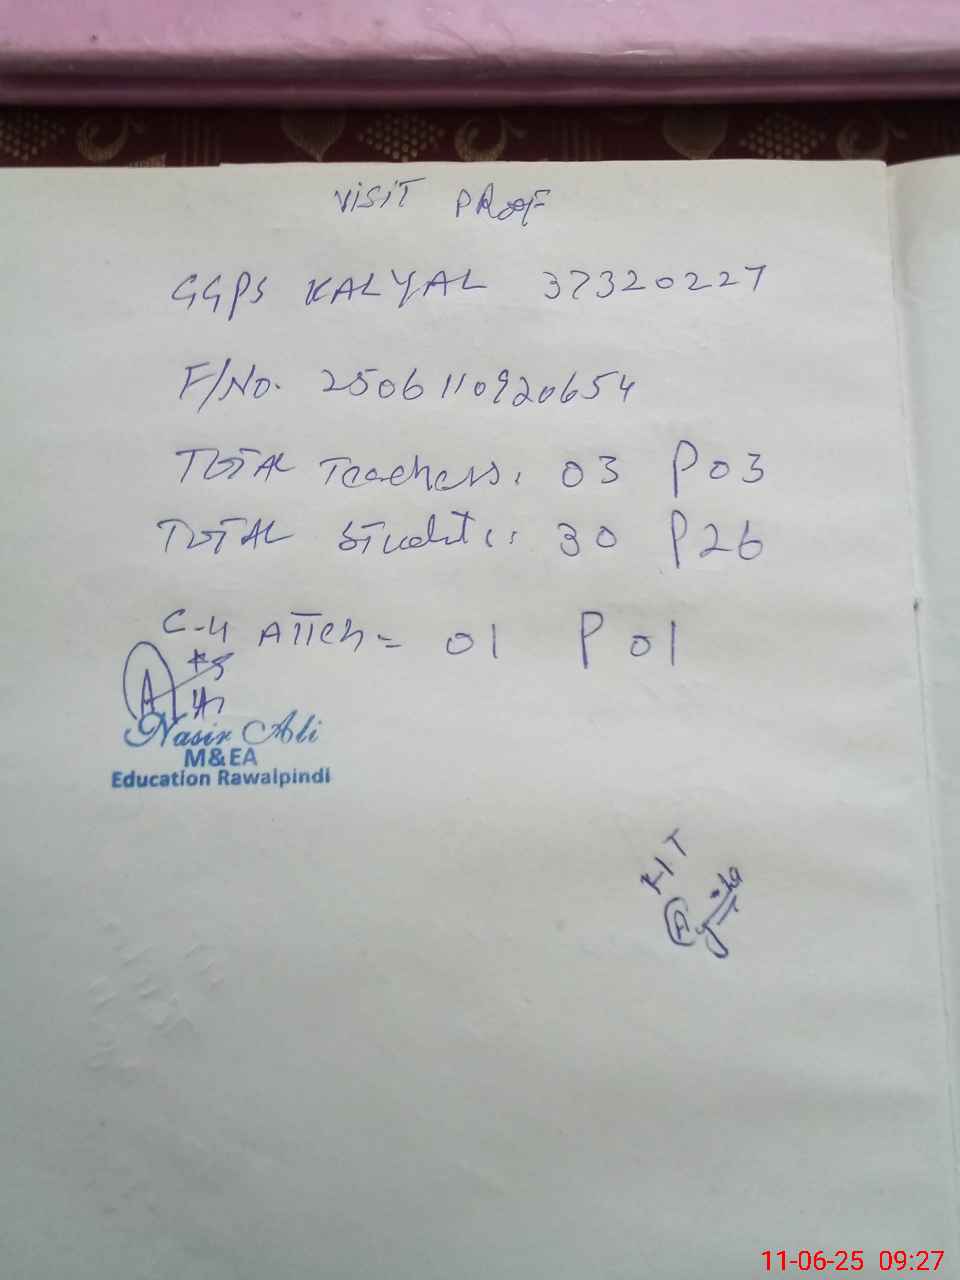 VISIT PROOF
GGPS KALYAL 37320227
F/No. 2506110920654
TOTAL Teachers: 03 P03
TOTAL Students: 30 P26
C-4 ATTCH = 01 P 01
Nasir Ali
M&EA
Education Rawalpindi
11-06-25 09:27